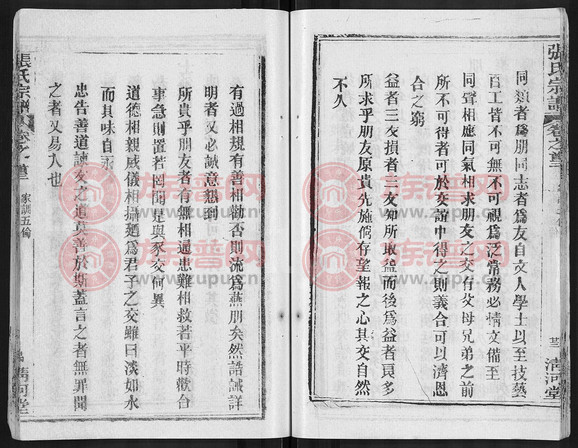 張氏宗譜
卷之首二
清河堂
同類者爲朋同志者爲友自文人學士以至技藝
百工皆不可無不可視爲泛常務必情文備至
同聲相應同氣相求朋友之交有父母兄弟之前
所不可得者可於交誼中得之則義合可以濟恩
合之窮
益者三友損者三友知所取益而後爲益者良多
所求乎朋友原貴先施倘存望報之心其交自然
不久
有過相規有善相勸否則流爲燕朋矣然誥誡詳
明者又必誠意懇到
所貴乎朋友者有無相通患難相救若平時歡台
事急則置若罔聞是與豕交何異
道德相親威儀相攝廼爲君子之交雖曰淡如水
而其味自
忠告善道諫友之道莫善於斯蓋言之者無罪聞
之者又易入也
張氏宗譜
卷之首
家訓五倫
清河堂
族譜网
www.zupu.cn
族譜网
www.zupu.cn